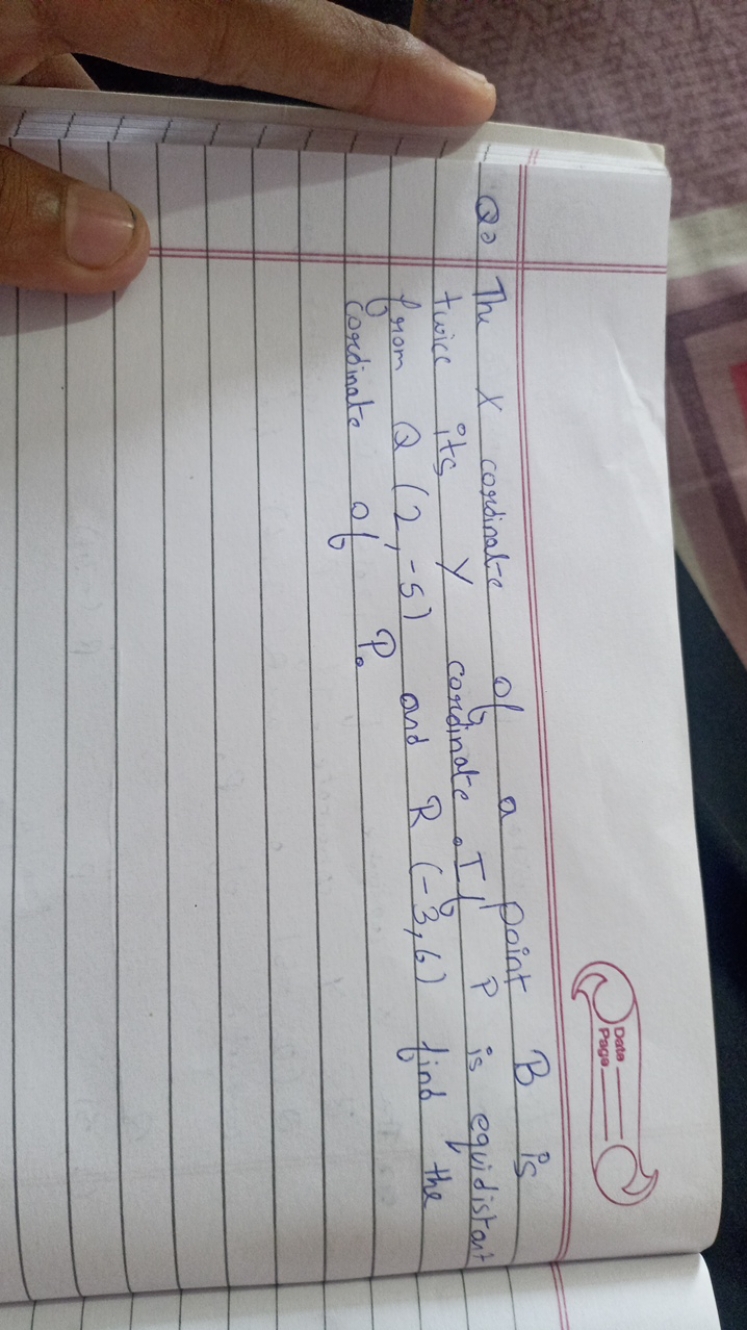 Date
Page
Q. The X cordinate of a point B is
twice its Y cordinate. If P is equidistant
from Q (2, -5) and R (-3, 6) find the
cordinate of P.